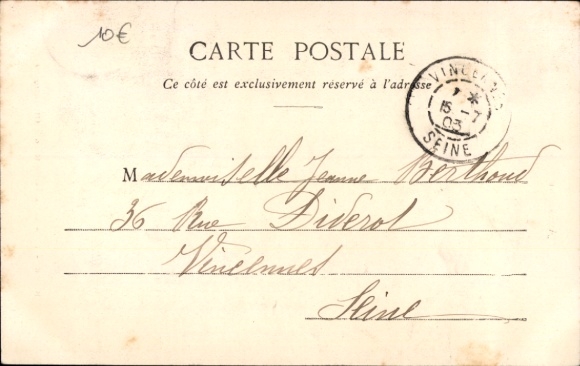 10€
CARTE POSTALE
Ce côté est exclusivement réservé à l'adresse
VINCENNES
15 -7
03
SEINE
Mademoiselle Jeanne Berthoud
36 Rue Diderot
Vincennes
Seine